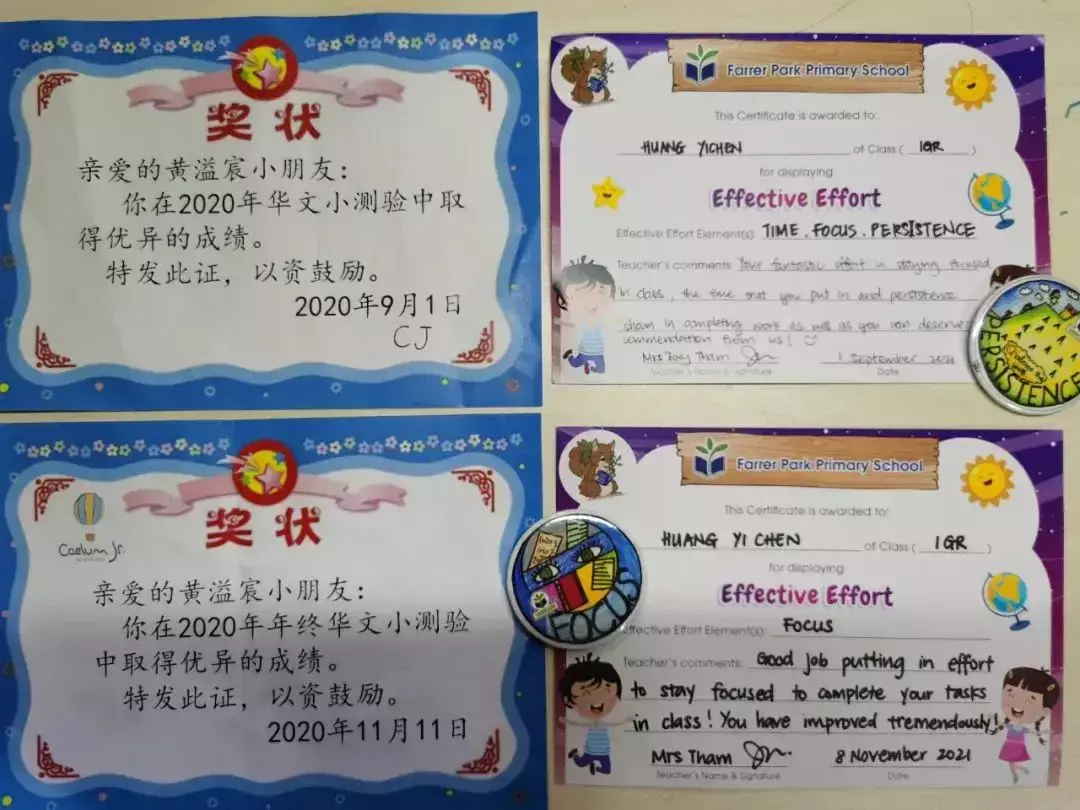 奖状
亲爱的黄溢宸小朋友:
你在2020年华文小测验中取
得优异的成绩。
特发此证,以资鼓励。
2020年9月1日
CJ
Farrer Park Primary School
This Certificate is awarded to:
HUANG YICHEN of Class ( 1GR )
for displaying
Effective Effort
Effective Effort Element(s): TIME . FOCUS . PERSISTENCE
Teacher's comments: Your fantastic effort in staying focused
in class, the time that you put in and persistence
shown in completing work as well as you can deserve
commendation from us!
Mrs Tham 1 September 2021
Teacher's Name & Signature Date
PERSISTENCE
奖状
Caelum Jr.
亲爱的黄溢宸小朋友:
你在2020年年终华文小测验
中取得优异的成绩。
特发此证,以资鼓励。
2020年11月11日
FOCUS
Farrer Park Primary School
This Certificate is awarded to:
HUANG YI CHEN of Class ( 1GR )
for displaying
Effective Effort
Effective Effort Element(s): FOCUS
Teacher's comments: Good job putting in effort
to stay focused to complete your tasks
in class! You have improved tremendously!
Mrs Tham 8 November 2021
Teacher's Name & Signature Date